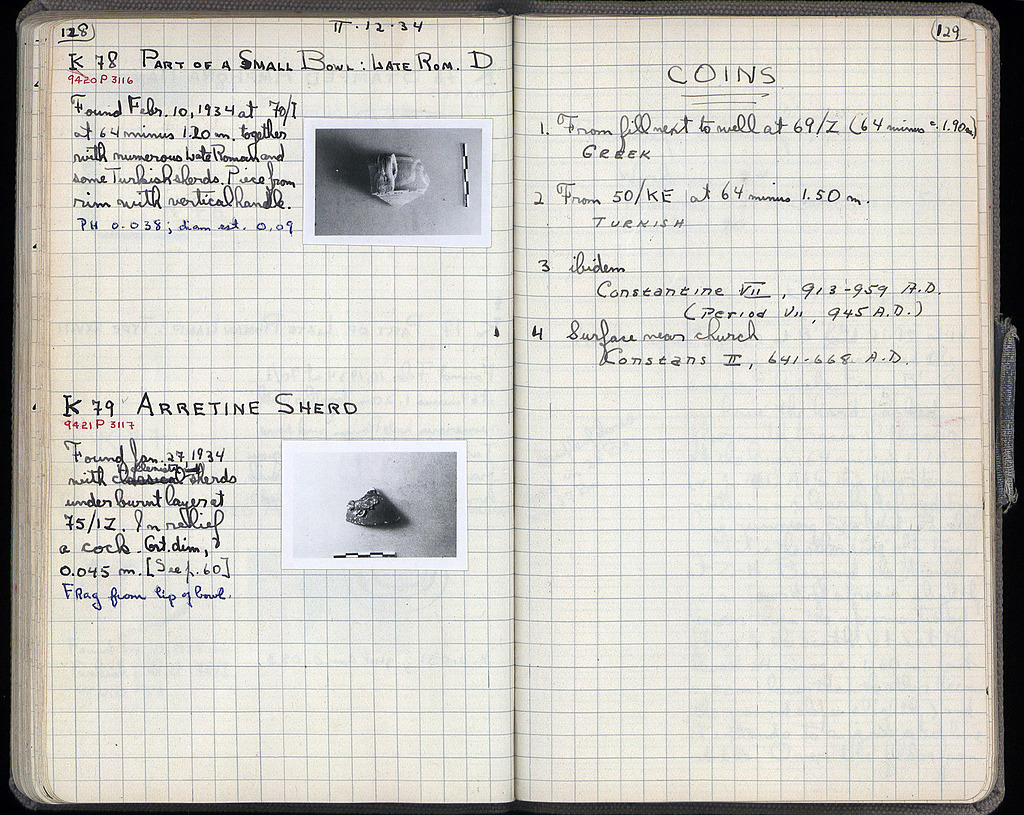 128
II·12·34
K 78 PART OF A SMALL BOWL: LATE ROM. D
9420 P 3116
Found Febr. 10, 1934 at 70/I
at 64 minus 1.20 m. together
with numerous Late Roman and
some Turkish sherds. Piece from
rim with vertical handle.
PH 0.038; diam est. 0.09
K 79 ARRETINE SHERD
9421 P 3117
Found Jan. 27, 1934
Hellenistic
with classical sherds
under burnt layer at
75/IZ. In relief
a cock. Grt. dim,
0.045 m. [See p. 60]
Frag from lip of bowl.
129
COINS
1. From fill next to well at 69/Z (64 minus c. 1.90m)
GREEK
2 From 50/KE at 64 minus 1.50 m.
TURKISH
3 ibidem
Constantine VII, 913-959 A.D.
(Period VII, 945 A.D.)
4 Surface near church
Constans II, 641-668 A.D.